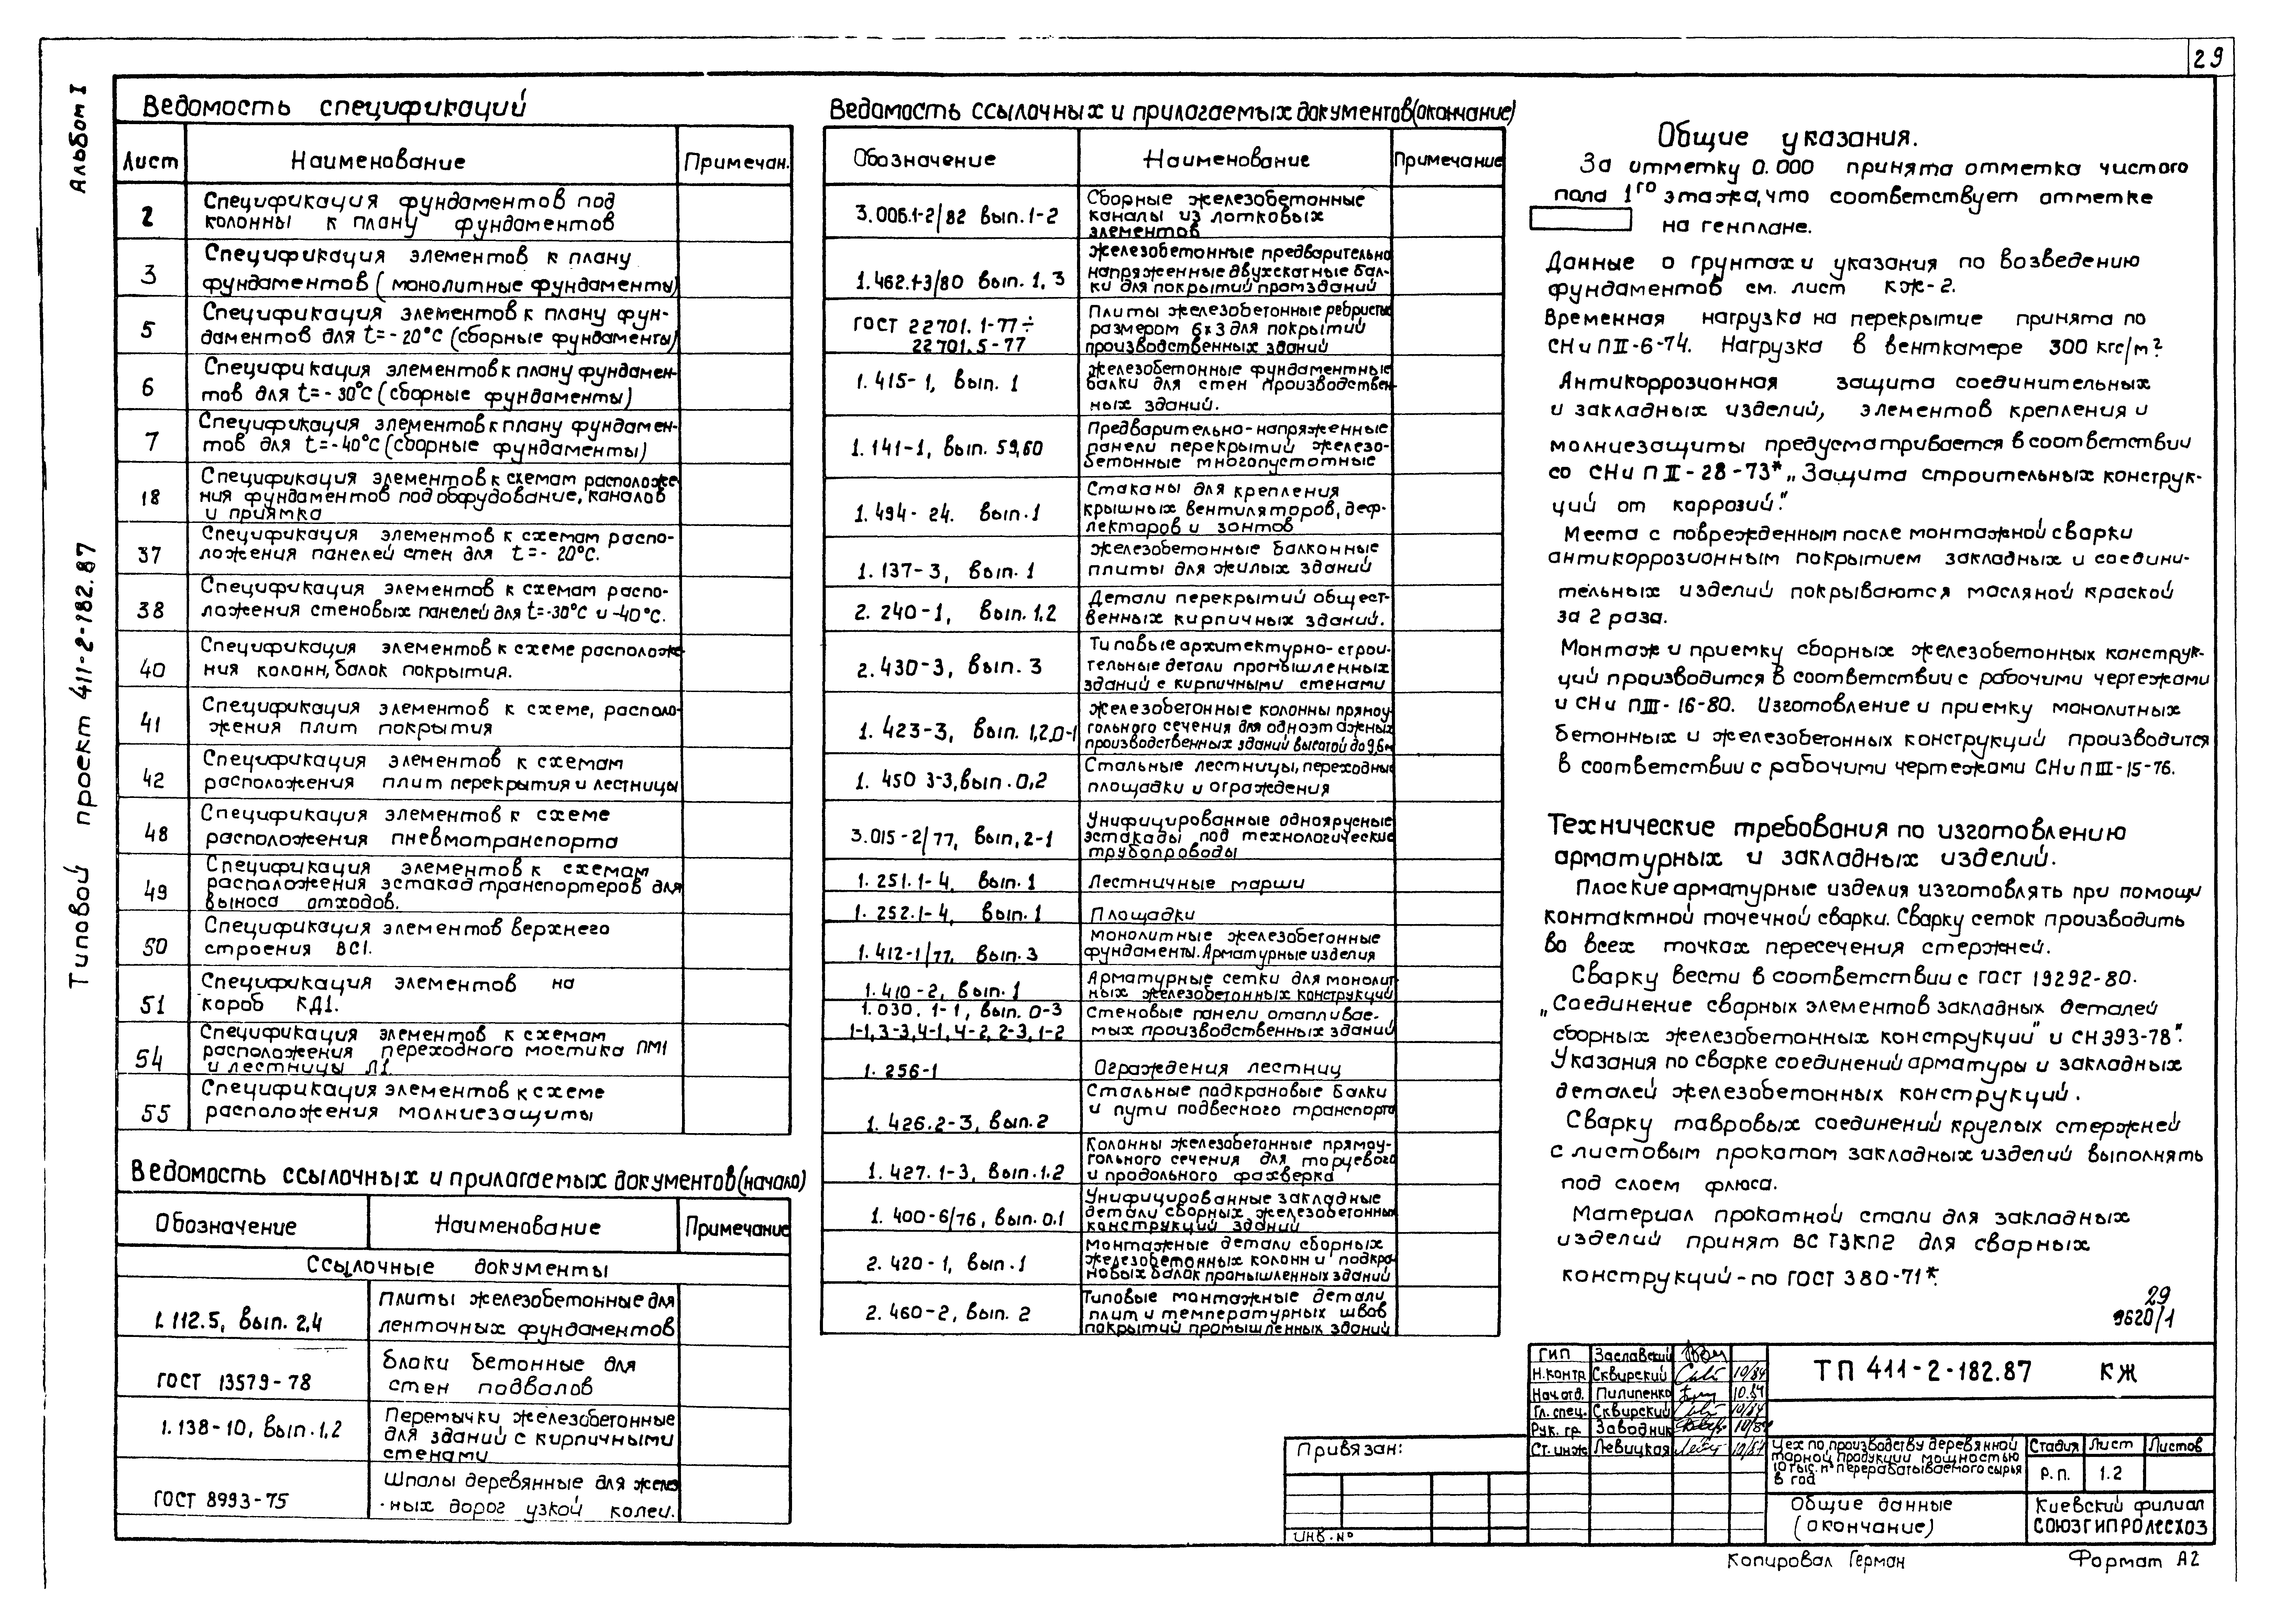 29
Альбом I
Типовой проект 411-2-182.87
Ведомость спецификаций
Лист Наименование Примечан.
2 Спецификация фундаментов под
колонны к плану фундаментов
3 Спецификация элементов к плану
фундаментов (монолитные фундаменты)
5 Спецификация элементов к плану фун-
даментов для t=-20°С (сборные фундаменты)
6 Спецификация элементов к плану фундамен-
тов для t=-30°С (сборные фундаменты)
7 Спецификация элементов к плану фундамен-
тов для t=-40°С (сборные фундаменты)
18 Спецификация элементов к схемам расположе-
ния фундаментов под оборудование, каналов
и приямка
37 Спецификация элементов к схемам распо-
ложения панелей стен для t=-20°С.
38 Спецификация элементов к схемам распо-
ложения стеновых панелей для t=-30°С и -40°С.
40 Спецификация элементов к схеме расположе-
ния колонн, балок покрытия.
41 Спецификация элементов к схеме, располо-
жения плит покрытия
42 Спецификация элементов к схемам
расположения плит перекрытия и лестницы
48 Спецификация элементов к схеме
расположения пневмотранспорта
49 Спецификация элементов к схемам
расположения эстакад транспортеров для
выноса отходов.
50 Спецификация элементов верхнего
строения ВС1.
51 Спецификация элементов на
короб КД1.
54 Спецификация элементов к схемам
расположения переходного мостика ПМ1
и лестницы Л1.
55 Спецификация элементов к схеме
расположения молниезащиты
Ведомость ссылочных и прилагаемых документов (начало)
Обозначение Наименование Примечание
Ссылочные документы
1.112.5, вып. 2,4 Плиты железобетонные для
ленточных фундаментов
ГОСТ 13579-78 Блоки бетонные для
стен подвалов
1.138-10, вып.1,2 Перемычки железобетонные
для зданий с кирпичными
стенами
ГОСТ 8993-75 Шпалы деревянные для желез-
ных дорог узкой колеи.
Ведомость ссылочных и прилагаемых документов (окончание)
Обозначение Наименование Примечание
3.006.1-2/82 вып. 1-2 Сборные железобетонные
каналы из лотковых
элементов
1.462.1-3/80 вып. 1, 3 Железобетонные предварительно
напряженные двухскатные бал-
ки для покрытий промзданий
ГОСТ 22701.1-77÷
22701.5-77 Плиты железобетонные ребристые
размером 6х3 для покрытий
производственных зданий
1.415-1, вып. 1 Железобетонные фундаментные
балки для стен производствен-
ных зданий.
1.141-1, вып. 59,60 Предварительно-напряженные
панели перекрытий железо-
бетонные многопустотные
1.494-24. вып.1 Стаканы для крепления
крышных вентиляторов, деф-
лекторов и зонтов
1.137-3, вып. 1 Железобетонные балконные
плиты для жилых зданий
2.240-1, вып. 1,2 Детали перекрытий общест-
венных кирпичных зданий.
2.430-3, вып. 3 Типовые архитектурно-строи-
тельные детали промышленных
зданий с кирпичными стенами
1.423-3, вып. 1,2,0-1 Железобетонные колонны прямоу-
гольного сечения для одноэтажных
производственных зданий высотой до 9,6м
1.450 3-3, вып.0,2 Стальные лестницы, переходные
площадки и ограждения
3.015-2/77, вып, 2-1 Унифицированные одноярусные
эстакады под технологические
трубопроводы
1.251.1-4, вып. 1 Лестничные марши
1.252.1-4, вып. 1 Площадки
1.412-1/77, вып. 3 Монолитные железобетонные
фундаменты. Арматурные изделия
1.410-2, вып. 1 Арматурные сетки для монолит-
ных железобетонных конструкций
1.030.1-1, вып. 0-3
1-1, 3-3, 4-1, 4-2, 2-3, 1-2 Стеновые панели отапливае-
мых производственных зданий
1.256-1 Ограждения лестниц
1.426.2-3, вып.2 Стальные подкрановые балки
и пути подвесного транспорта
1.427.1-3, вып.1,2 Колонны железобетонные прямоу-
гольного сечения для торцевого
и продольного фахверка
1.400-6/76, вып. 0,1 Унифицированные закладные
детали сборных железобетонных
конструкций зданий
2.420-1, вып.1 Монтажные детали сборных
железобетонных колонн и подкра-
новых балок промышленных зданий
2.460-2, вып. 2 Типовые монтажные детали
плит и температурных швов
покрытий промышленных зданий
Общие указания.
За отметку 0.000 принята отметка чистого
пола 1го этажа, что соответствует отметке
на генплане.
Данные о грунтах и указания по возведению
фундаментов см. лист КЖ-2.
Временная нагрузка на перекрытие принята по
СНиП II-6-74. Нагрузка в венткамере 300 кгс/м².
Антикоррозионная защита соединительных
и закладных изделий, элементов крепления и
молниезащиты предусматривается в соответствии
со СНиП II-28-73* „Защита строительных конструк-
ций от коррозий."
Места с поврежденным после монтажной сварки
антикоррозионным покрытием закладных и соедини-
тельных изделий покрываются масляной краской
за 2 раза.
Монтаж и приемку сборных железобетонных конструк-
ций производится в соответствии с рабочими чертежами
и СНиП III-16-80. Изготовление и приемку монолитных
бетонных и железобетонных конструкций производится
в соответствии с рабочими чертежами СНиП III-15-76.
Технические требования по изготовлению
арматурных и закладных изделий.
Плоские арматурные изделия изготовлять при помощи
контактной точечной сварки. Сварку сеток производить
во всех точках пересечения стержней.
Сварку вести в соответствии с ГОСТ 19292-80.
„Соединение сварных элементов закладных деталей
сборных железобетонных конструкций" и СН 393-78".
Указания по сварке соединений арматуры и закладных
деталей железобетонных конструкций.
Сварку тавровых соединений круглых стержней
с листовым прокатом закладных изделий выполнять
под слоем флюса.
Материал прокатной стали для закладных
изделий принят ВСт3КП2 для сварных
конструкций-по ГОСТ 380-71*.
29
9620/1
ГИП Заславский
Н.контр Сквирский 10/84
Нач.отд. Пилипенко 10.84
Гл. спец. Сквирский 10/84
Рук. гр. Заводник 10/84
Ст. инж. Левицкая 10/84
ТП 411-2-182.87 КЖ
Цех по производству деревянной
тарной продукции мощностью
10 тыс. м³ перерабатываемого сырья
в год
Стадия Лист Листов
Р.п. 1.2
Общие данные
(окончание)
Киевский филиал
СОЮЗГИПРОЛЕСХОЗ
Привязан:
ИНВ.№
Копировал Герман Формат А2